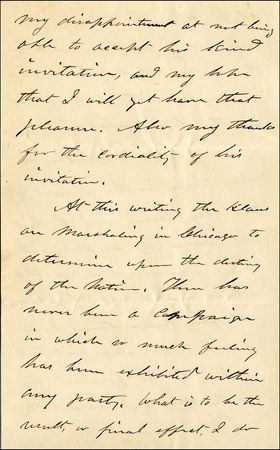 my disappointment at not being
able to accept his kind
invitation, and my hope
that I will yet have that
pleasure. Also my thanks
for the cordiality of his
invitation.
At this writing the Klans
are Marshaling in Chicago to
determine upon the destiny
of the Nation. There has
never been a Campaign
in which so much feeling
has been exhibited within
any party. What is to be the
result, or final effect, I do